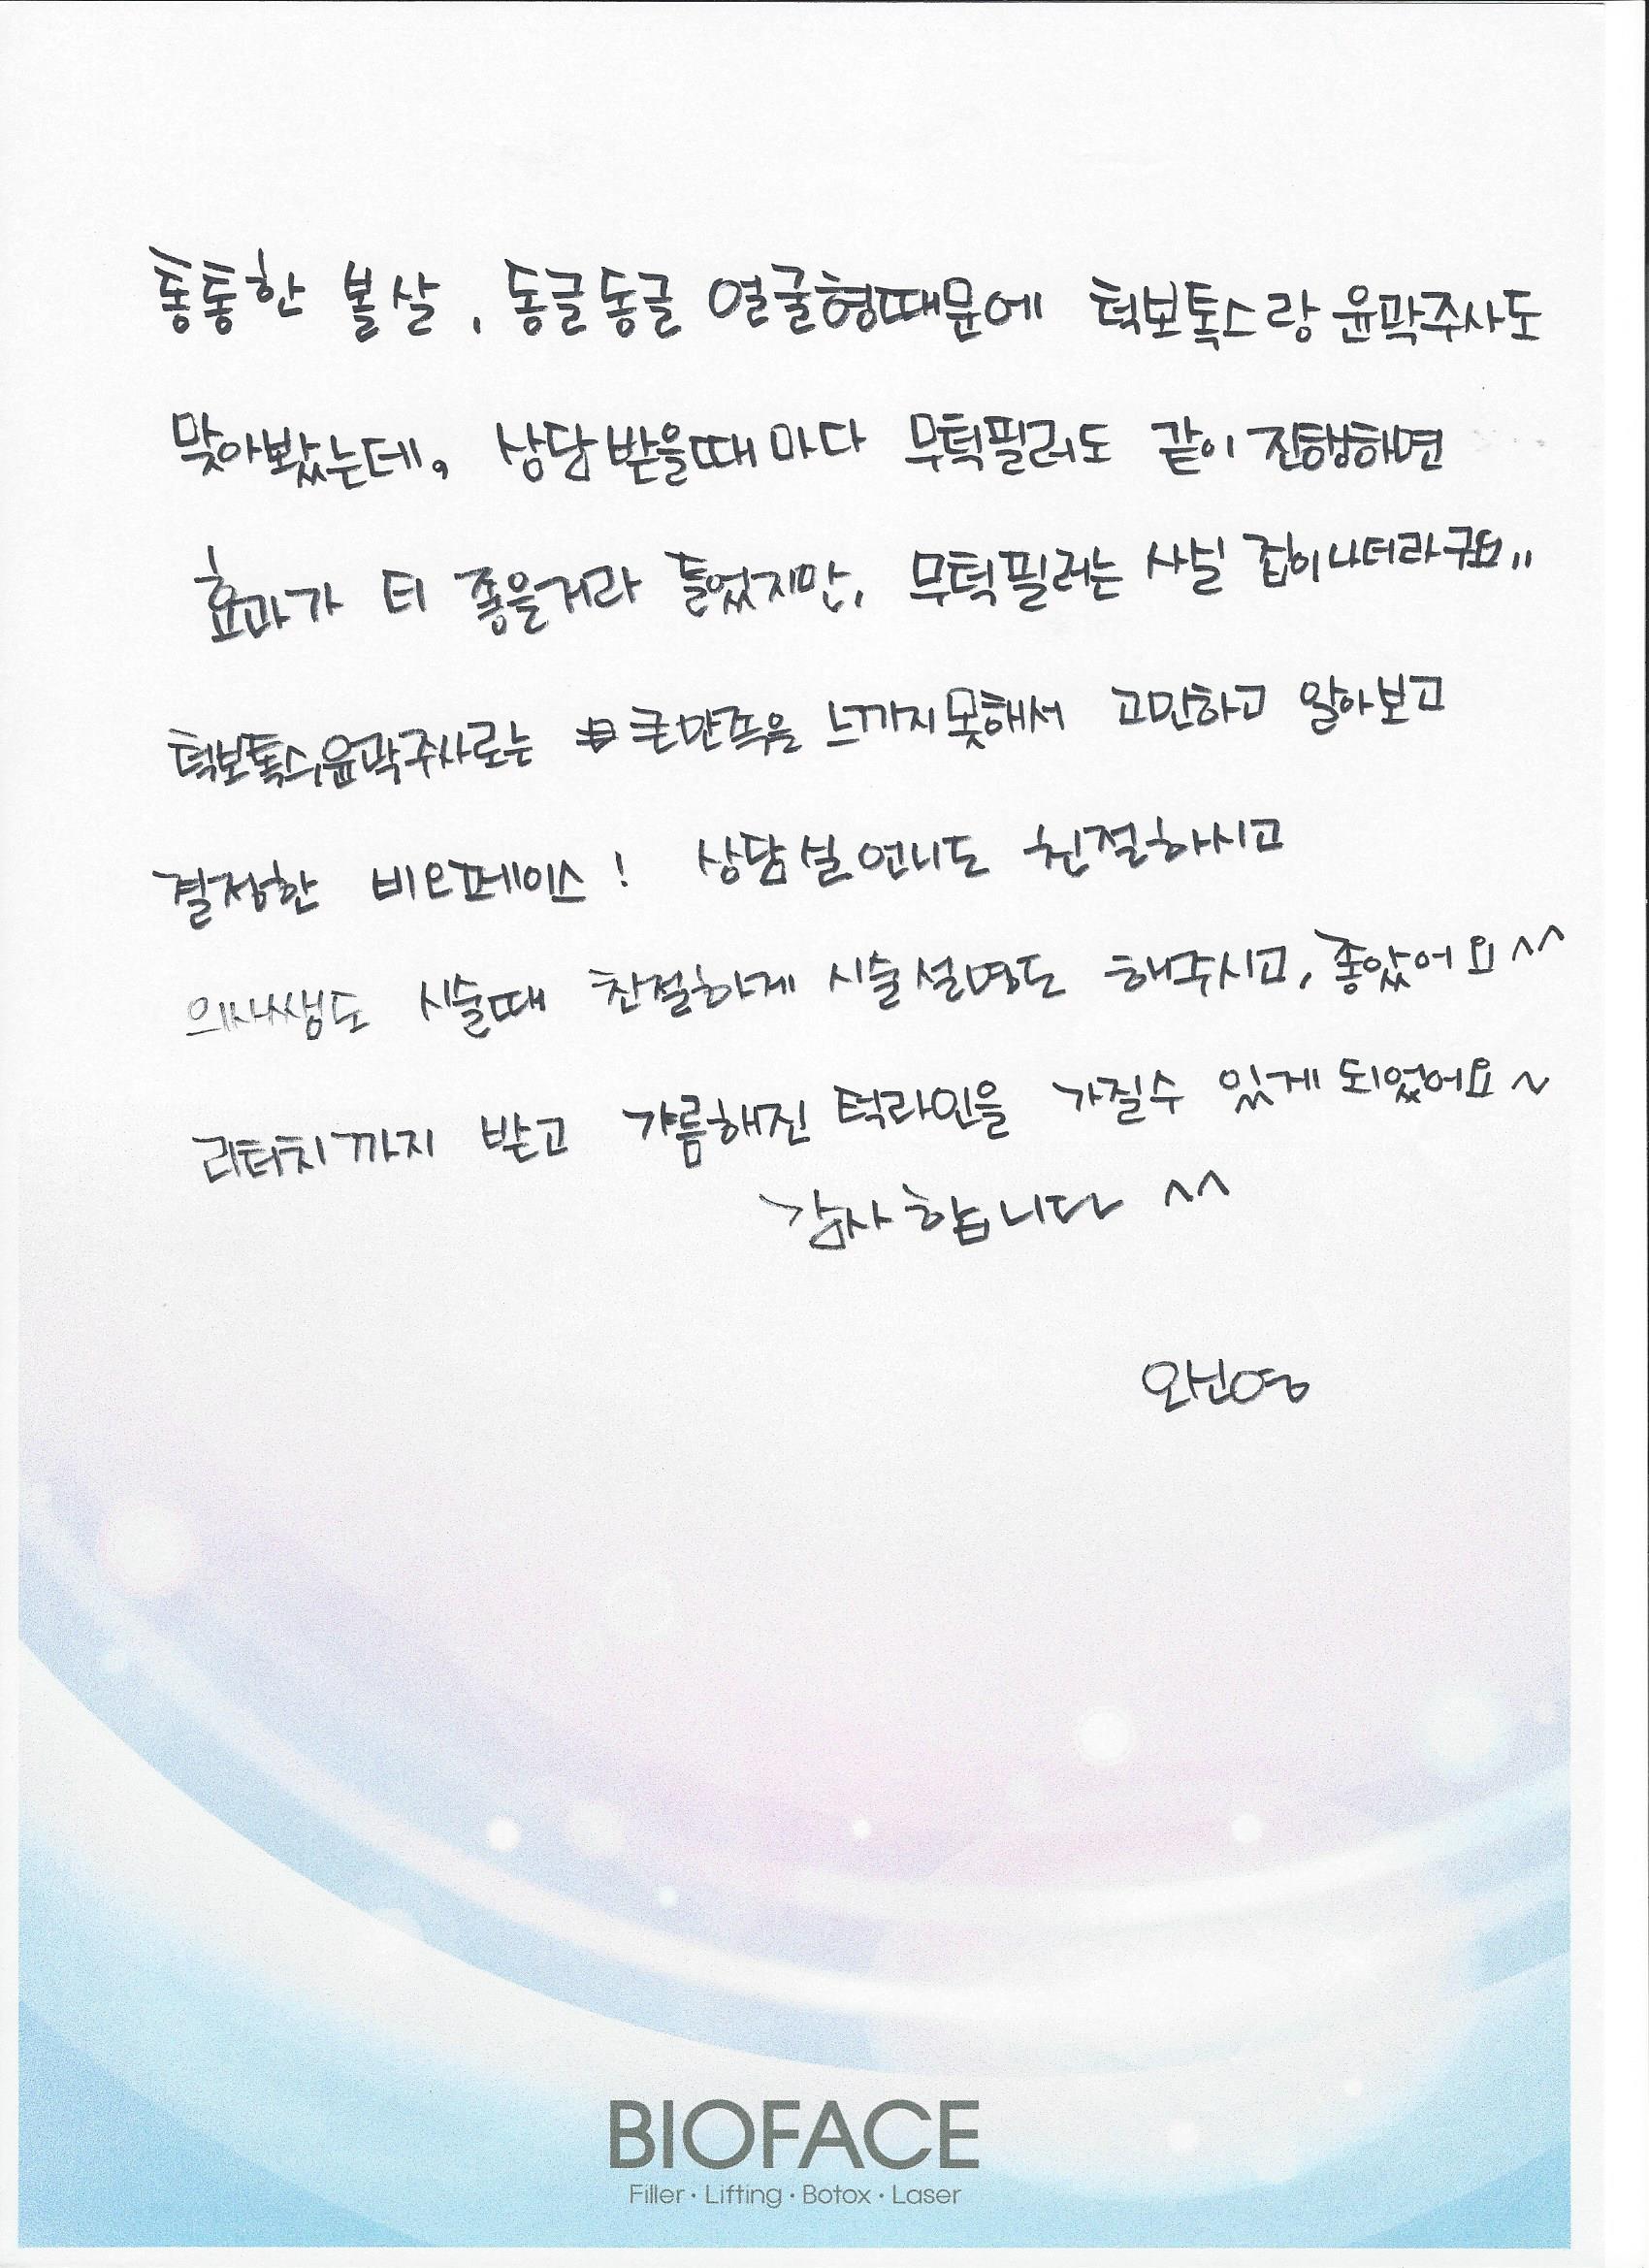 통통한 볼살, 동글동글 얼굴형때문에 턱보톡스랑 윤곽주사도
맞아봤는데, 상담받을때마다 무턱필러도 같이 진행하면
효과가 더 좋을거라 들었지만, 무턱필러는 사실 겁이나더라구요..
턱보톡스,윤곽주사로는 큰만족을 느끼지못해서 고민하고 알아보고
결정한 비오페이스! 상담실언니도 친절하시고
의사쌤도 시술때 친절하게 시술설명도 해주시고, 좋았어요^^
리터치까지 받고 갸름해진 턱라인을 가질수 있게 되었어요~
감사합니다 ^^
오신영
BIOFACE
Filler · Lifting · Botox · Laser